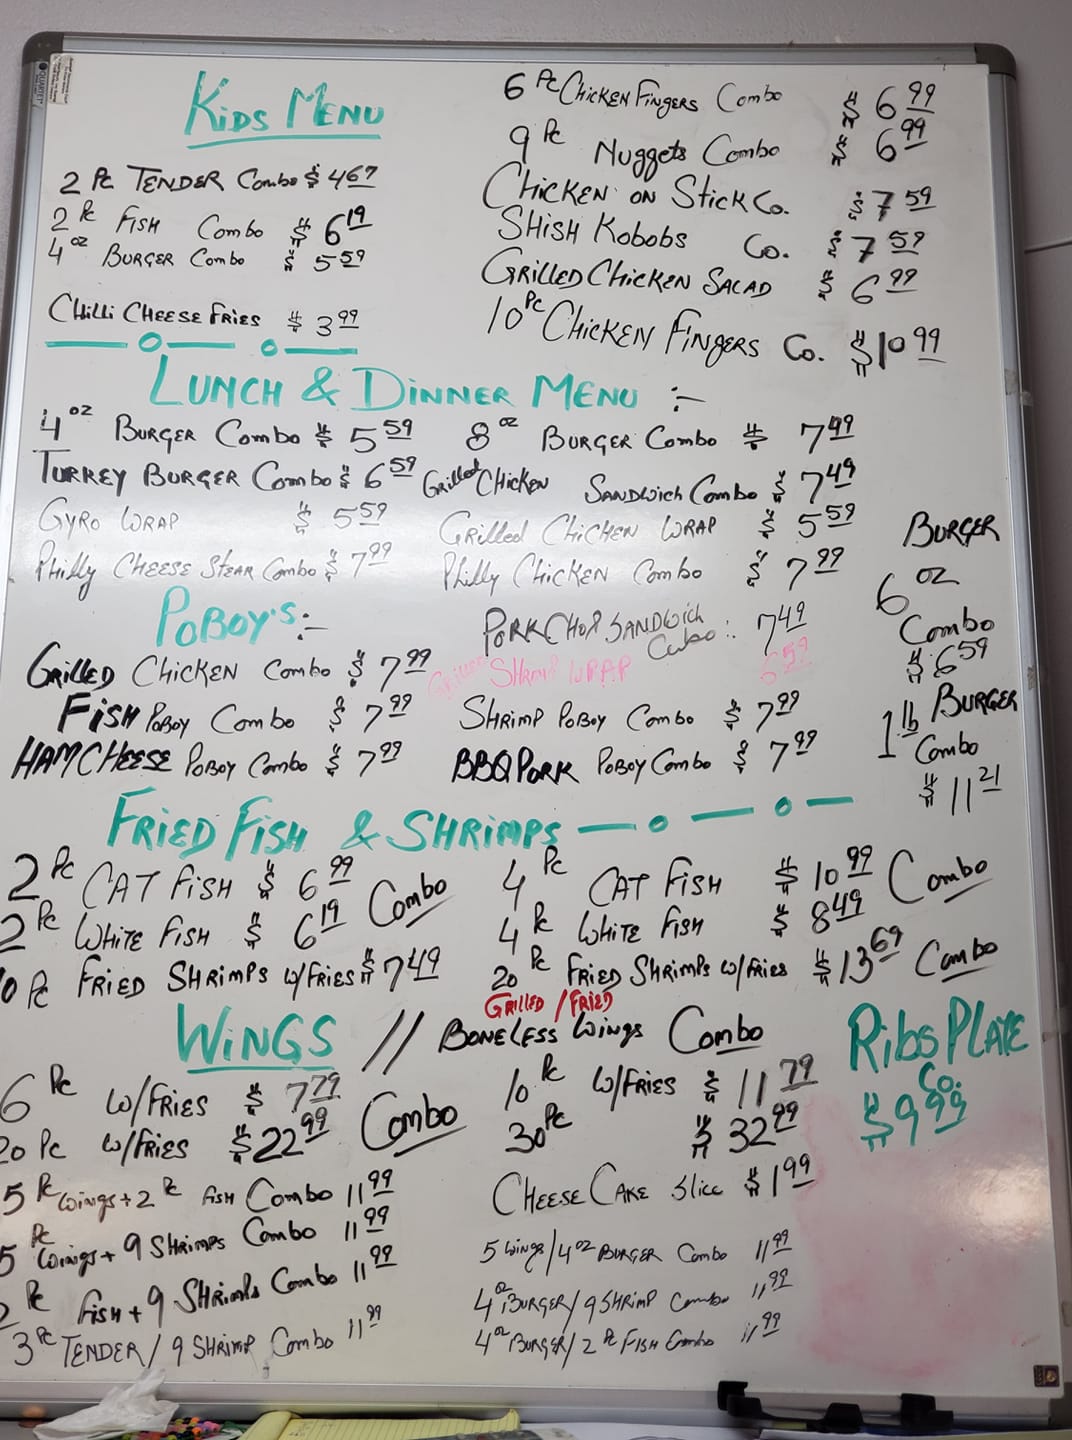 KIDS MENU
2 Pc TENDER Combo $ 4.67
2 Pc FISH Combo $ 6 19
4 oz BURGER Combo $ 5 59
CHILLI CHEESE FRIES $ 3 99
6 Pc CHICKEN FINGERS Combo $ 6 99
9 Pc NUGGETS Combo $ 6 99
CHICKEN ON STICK Co. $ 7 59
SHISH KOBOBS Co. $ 7 59
GRILLED CHICKEN SALAD $ 6 99
10 Pc CHICKEN FINGERS Co. $ 10 99
LUNCH & DINNER MENU :-
4 oz BURGER Combo $ 5 59 8 oz BURGER Combo $ 7 49
TURKEY BURGER Combo $ 6 59 Grilled CHICKEN SANDWICH Combo $ 7 49
GYRO WRAP $ 5 59 Grilled CHICKEN WRAP $ 5 59
Philly CHEESE STEAK Combo $ 7 99 Philly CHICKEN Combo $ 7 99
POBOY'S :- PORKCHOP SANDWICH Combo : 7 49
GRILLED CHICKEN Combo $ 7 99 GRILLED SHRIMP WRAP 6 59
FISH POBOY Combo $ 7 99 SHRIMP POBOY Combo $ 7 99
HAM CHEESE POBOY Combo $ 7 99 BBQ PORK POBOY Combo $ 7 99
BURGER
6 oz
Combo
$ 6 59
1 lb BURGER
Combo
$ 11 21
FRIED FISH & SHRIMPS
2 Pc CAT FISH $ 6 99 Combo 4 Pc CAT FISH $ 10 99 Combo
2 Pc WHITE FISH $ 6 19 4 Pc WHITE FISH $ 8 49
10 Pc FRIED SHRIMPS W/FRIES $ 7 49 20 Pc FRIED SHRIMPS W/FRIES $ 13 69 Combo
GRILLED / FRIED
WINGS // BONELESS WINGS Combo
6 Pc W/FRIES $ 7 79 Combo 10 Pc W/FRIES $ 11 79
20 Pc W/FRIES $ 22 99 30 Pc $ 32 99
RIBS PLATE
Co.
$ 9 99
5 Pc Wings + 2 Pc FISH Combo 11 99 CHEESE CAKE Slice $ 1 99
5 Pc Wings + 9 SHRIMPS Combo 11 99 5 Wings / 4 oz BURGER Combo 11 99
2 Pc FISH + 9 SHRIMPS Combo 11 99 4 oz BURGER / 9 SHRIMP Combo 11 99
3 Pc TENDER / 9 SHRIMP Combo 11 99 4 oz BURGER / 2 Pc FISH Combo 11 99
QUARTET